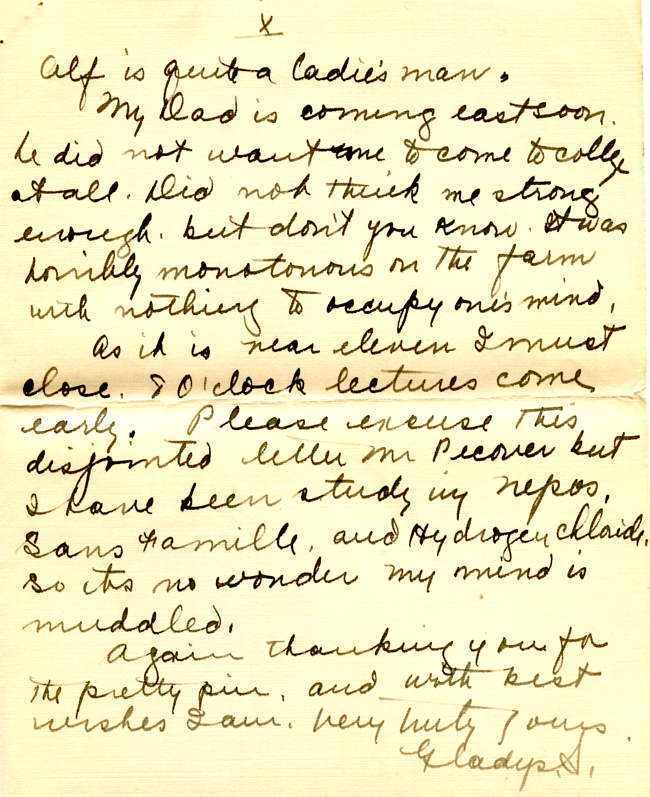 X
Alf is quite a ladies man.
My Dad is coming east soon.
he did not want me to come to college
at all. Did not think me strong
enough. but don't you know. It was
horribly monotonous on the farm
with nothing to occupy one's mind.
As it is near eleven I must
close. 8 O'clock lectures come
early. Please excuse this
disjointed letter Mr Pecover but
I have been studying Nepos,
Sans Famille, and Hydrogen chloride.
so its no wonder my mind is
muddled.
Again thanking you for
the pretty pin, and with best
wishes I am. Very truly yours.
Gladys. S.